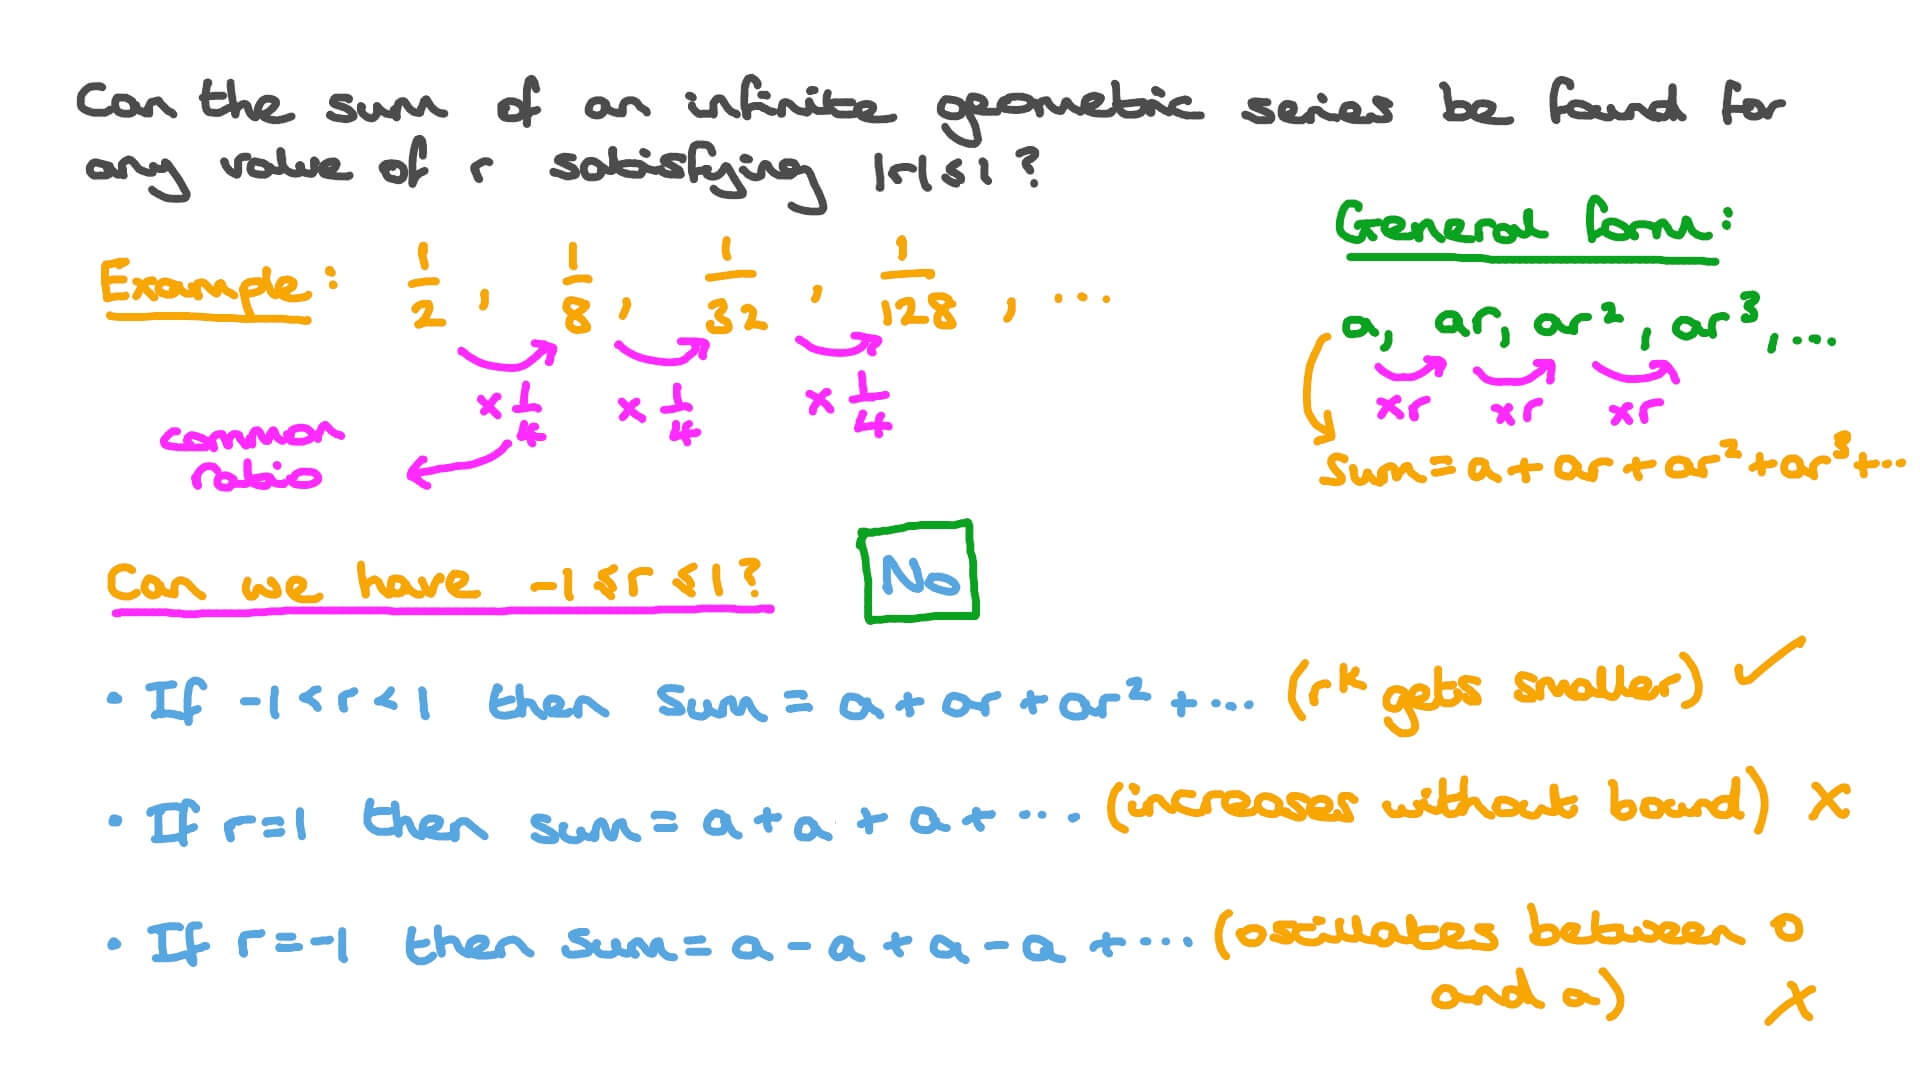 Can the sum of an infinite geometric series be found for
any value of r satisfying |r| ≤ 1?
General form:
Example: 1/2, 1/8, 1/32, 1/128, ...
a, ar, ar², ar³, ...
×1/4 ×1/4 ×1/4
×r ×r ×r
common
ratio
Sum = a + ar + ar² + ar³ + ...
Can we have -1 ≤ r ≤ 1? No
• If -1 < r < 1 then sum = a + ar + ar² + ... (r^k gets smaller) ✓
• If r = 1 then sum = a + a + a + ... (increases without bound) X
• If r = -1 then sum = a - a + a - a + ... (oscillates between 0
and a) X